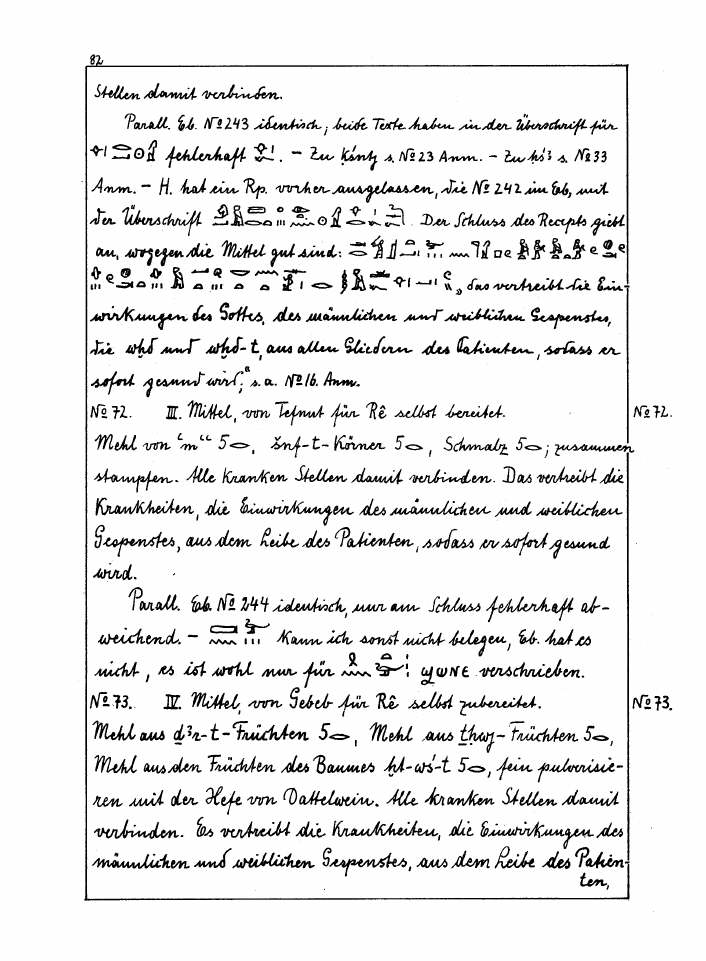 82
Stellen damit verbinden.
Parall. Eb. No 243 identisch; beide Texte haben in der Überschrift für
fehlerhaft . – Zu s. No 23 Anm. – Zu s. No 33
Anm. – H. hat ein Rp. vorher ausgelassen, die No 242 im Eb, mit
der Überschrift . Der Schluss des Recepts giebt
an, wogegen die Mittel gut sind:
„das vertreibt die Ein-
wirkungen des Gottes, des männlichen und weiblichen Gespenstes,
die wḥd und wḥd-t, aus allen Gliedern des Patienten, sodass er
sofort gesund wird;“ s. a. No 16. Anm.
No 72. III. Mittel, von Tefnut für Rê selbst bereitet. No 72.
Mehl von 5, šnf-t-Körner 5, Schmalz 5; zusammen
stampfen. Alle kranken Stellen damit verbinden. Das vertreibt die
Krankheiten, die Einwirkungen des männlichen und weiblichen
Gespenstes, aus dem Leibe des Patienten, sodass er sofort gesund
wird.
Parall. Eb. No 244 identisch, nur am Schluss fehlerhaft ab-
weichend. – kann ich sonst nicht belegen, Eb. hat es
nicht, es ist wohl nur für ϣⲱⲛⲉ verschrieben.
No 73. IV. Mittel, von Gebeb für Rê selbst zubereitet. No 73.
Mehl aus -Früchten 5, Mehl aus -Früchten 5,
Mehl aus den Früchten des Baumes 5, fein pulverisie-
ren mit der Hefe von Dattelwein. Alle kranken Stellen damit
verbinden. Es vertreibt die Krankheiten, die Einwirkungen des
männlichen und weiblichen Gespenstes, aus dem Leibe des Patien-
ten,